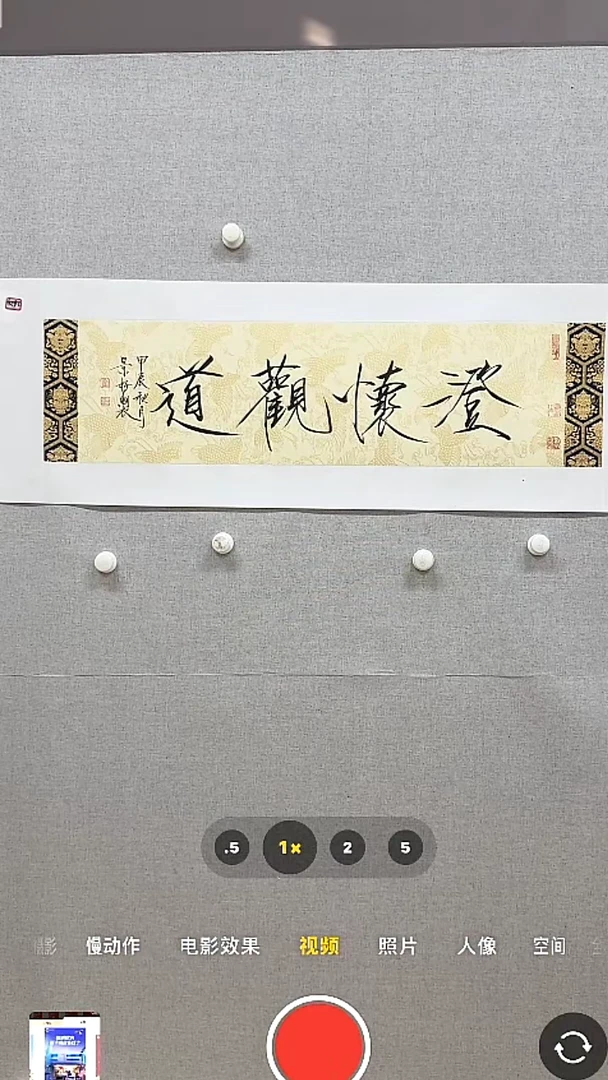 澄懷觀道
甲辰秋月
.5 1× 2 5
慢动作 电影效果 视频 照片 人像 空间